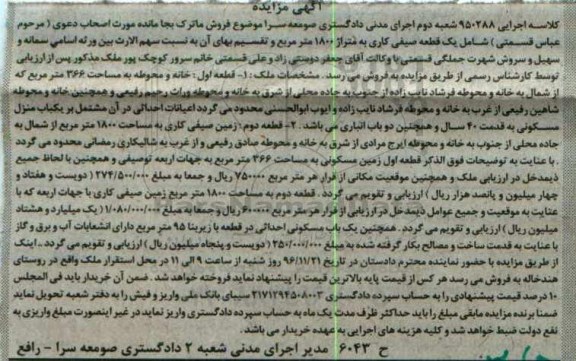 آگهی مزایده
کلاسه اجرایی ۹۵۰۲۸۸ شعبه دوم اجرای مدنی دادگستری صومعه سرا موضوع فروش ماترک بجا مانده مورث اصحاب دعوی ( مرحوم
عباس قسمتی ) شامل یک قطعه صیفی کاری به متراژ ۱۸۰۰ متر مربع و تقسیم بهای آن به نسبت سهم الارث بین ورثه اسامی سمانه و
سهیل و سروش شهرت جملگی قسمتی با وکالت آقای جعفر دوستی زاد و علی قسمتی خانم سرور کوچک پور ملک مذکور پس از ارزیابی
توسط کارشناس رسمی از طریق مزایده به فروش می رسد . مشخصات ملک : ۱- قطعه اول : خانه و محوطه به مساحت ۳۶۶ متر مربع که
از شمال به خانه و محوطه فرشاد نایب زاده از جنوب به جاده محلی از شرق به خانه و محوطه وراث رحیم رفیعی و همچنین خانه
شاهین رفیعی از غرب به خانه و محوطه فرشاد نایب زاده و ایوب ابوالحسنی محدود می گردد اعیانات احداثی در آن مشتمل بر یکباب منزل
مسکونی به قدمت ۴۰ سال و همچنین دو باب انباری می باشد . ۲- قطعه دوم : زمین صیفی کاری به مساحت ۱۸۰۰ متر مربع از شمال به
جاده محلی از جنوب به خانه و محوطه ایرج مرادی از شرق به خانه و محوطه صادق رفیعی و از غرب به شالیکاری رمضانی محدود می گردد
. با عنایت به توضیحات فوق الذکر قطعه اول زمین مسکونی به مساحت ۳۶۶ متر مربع به جهات اربعه توصیفی و همچنین با لحاظ جمیع
ذیمدخل در ارزیابی ملک و همچنین موقعیت مکانی از قرار هر متر مربع ۷۵۰۰۰۰ ریال و جمعا به مبلغ ۲۷۴/۵۰۰/۰۰۰ ( دویست و هفتاد و
چهار میلیون و پانصد هزار ریال ) ارزیابی و تقویم می گردد . قطعه دوم به مساحت ۱۸۰۰ متر مربع زمین صیفی کاری با جهات اربعه که با
عنایت به موقعیت و جمیع عوامل ذیمدخل در ارزیابی از قرار هر متر مربع ۶۰۰۰۰۰ ریال و جمعا به مبلغ ۱/۰۸۰/۰۰۰/۰۰۰ ( یک میلیارد و هشتاد
میلیون ریال ) ارزیابی و تقویم می گردد . همچنین یک باب مسکونی احداثی در قطعه با زیربنا ۹۵ متر مربع دارای انشعابات آب و برق و گاز
با عنایت به قدمت ساخت و مصالح بکار گرفته شده به مبلغ ۲۵۰/۰۰۰/۰۰۰ ( دویست و پنجاه میلیون ریال ) ارزیابی و تقویم می گردد . اینک
از طریق مزایده با حضور نماینده محترم دادستان در تاریخ ۹۶/۱۱/۲۱ روز شنبه از ساعت ۹ الی ۱۱ در محل استقرار ملک واقع در روستای
هندخاله به فروش می رسد هر کس از قیمت پایه بالاترین قیمت را پیشنهاد نماید فروخته خواهد شد . ضمن آن خریدار باید فی المجلس
۱۰ درصد قیمت پیشنهادی را به حساب سپرده دادگستری ۲۱۷۱۲۹۴۵۰۸۰۰۳ سیبای بانک ملی واریز و فیش را به دفتر شعبه تحویل نماید
ضمنا برنده مزایده مابقی مبلغ را باید حداکثر ظرف مدت یک ماه به حساب سپرده دادگستری واریز نماید در غیر اینصورت مبلغ واریزی به
نفع دولت ضبط خواهد شد و کلیه هزینه های اجرایی به عهده خریدار می باشد .
ح ۶۰۴۳ مدیر اجرای مدنی شعبه ۲ دادگستری صومعه سرا - رافع